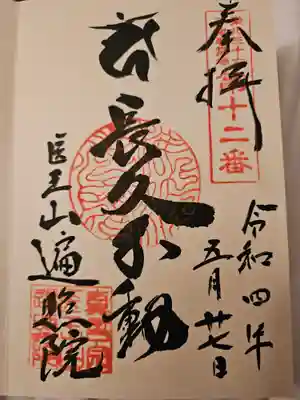 奉拝
第十二番
令和四年
五月廿七日
長久不動
医王山遍照院